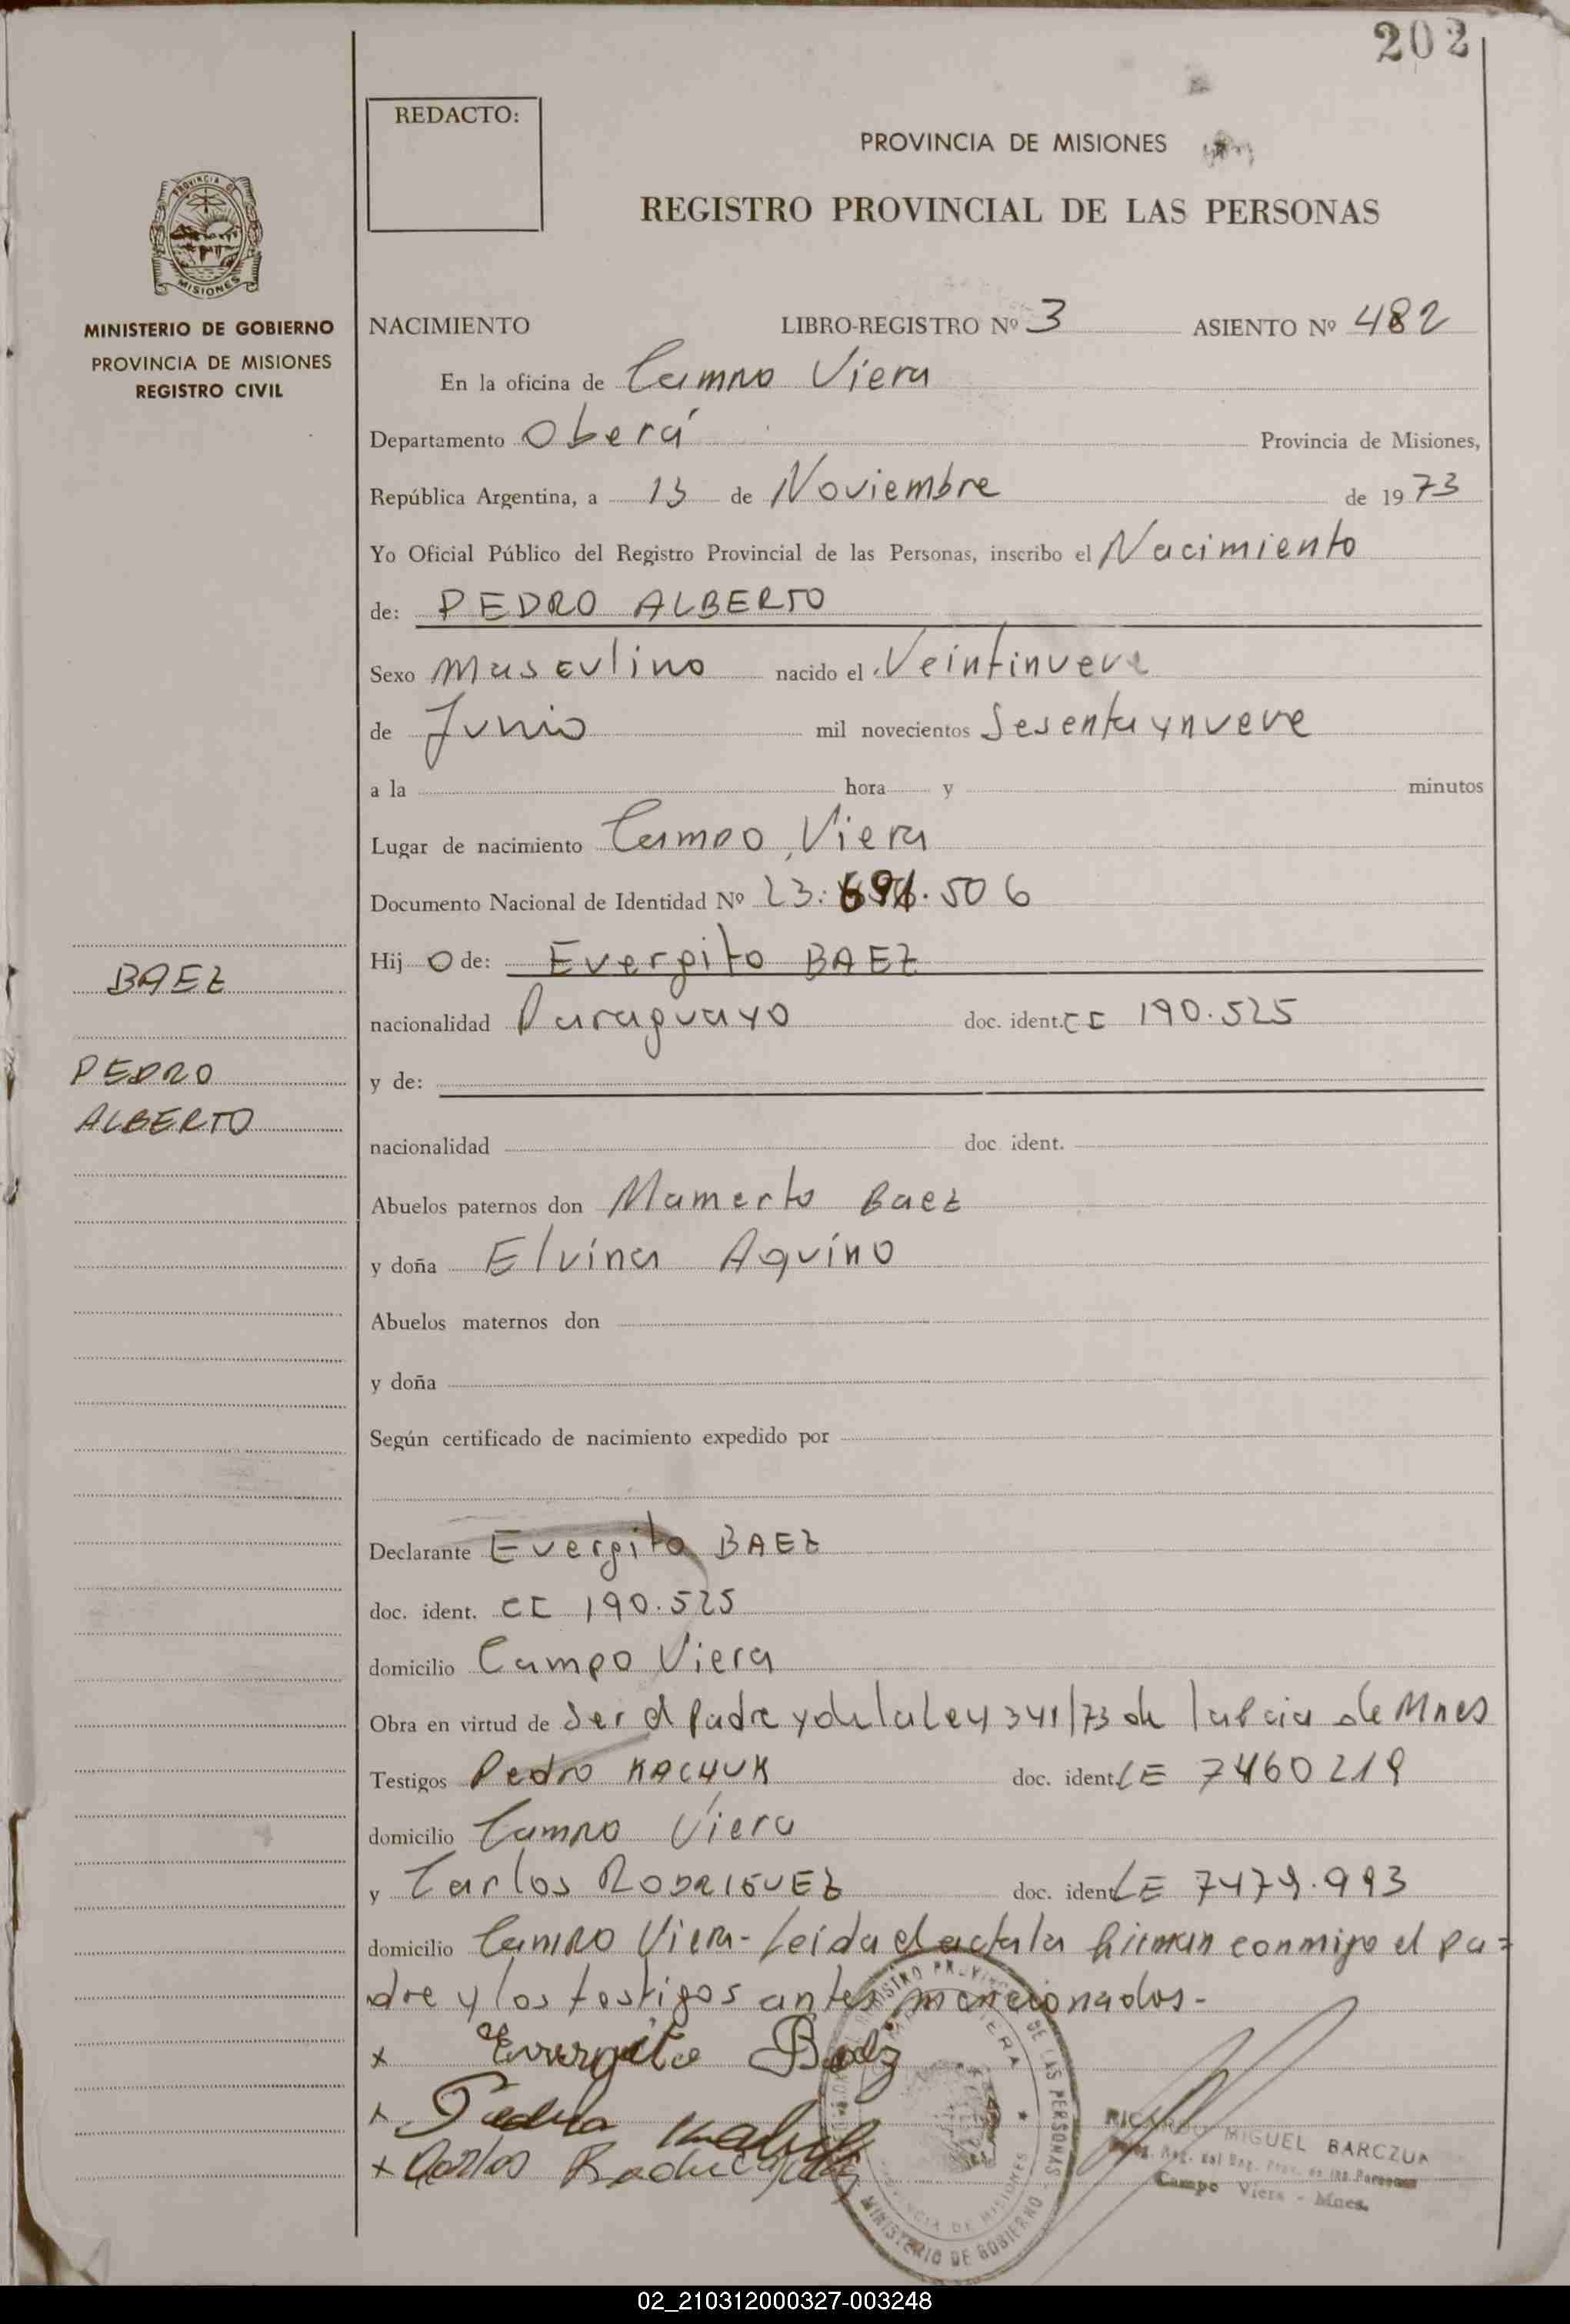 202
REDACTO:
PROVINCIA DE MISIONES
REGISTRO PROVINCIAL DE LAS PERSONAS
PROVINCIA DE
MISIONES
MINISTERIO DE GOBIERNO
PROVINCIA DE MISIONES
REGISTRO CIVIL
NACIMIENTO LIBRO-REGISTRO Nº 3 ASIENTO Nº 482
En la oficina de Campo Viera
Departamento Oberá Provincia de Misiones,
República Argentina, a 13 de Noviembre de 1973
Yo Oficial Público del Registro Provincial de las Personas, inscribo el Nacimiento
de: PEDRO ALBERTO
Sexo Masculino nacido el Veintinueve
de Junio mil novecientos Sesenta y nueve
a la hora y minutos
Lugar de nacimiento Campo Viera
Documento Nacional de Identidad Nº 23. 691.506
Hijo de: Evergito BAEZ
nacionalidad Paraguayo doc. ident. CI 190.525
y de:
nacionalidad doc. ident.
Abuelos paternos don Mamerto Baez
y doña Elvina Aquino
Abuelos maternos don
y doña
Según certificado de nacimiento expedido por
Declarante Evergito BAEZ
doc. ident. CI 190.525
domicilio Campo Viera
Obra en virtud de Ser el Padre y de la Ley 341/73 de la Pcia de Mnes
Testigos Pedro KACHUK doc. ident. LE 7460219
domicilio Campo Viera
y Carlos RODRIGUEZ doc. ident. LE 7479.993
domicilio Campo Viera - Leida el acta la firman conmigo el pa=
dre y los testigos antes mencionados-
x Evergito Baez
x Pedro
x Carlos
BAEZ
PEDRO
ALBERTO
REGISTRO PROVINCIAL DE LAS PERSONAS
PROVINCIA DE MISIONES
MINISTERIO DE GOBIERNO
RICARDO MIGUEL BARCZUK
Campo Viera - Mnes.
02_210312000327-003248